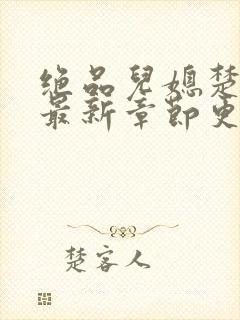 绝品兒媳楚
最新章節史
楚客人